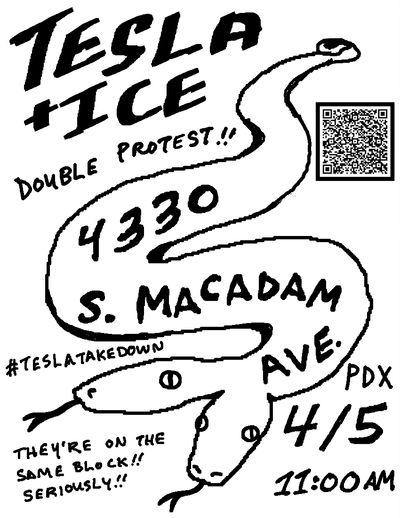 TESLA
+ICE
DOUBLE PROTEST!!
4330
S. MACADAM
AVE.
#TESLATAKEDOWN
PDX
4/5
11:00AM
THEY'RE ON THE
SAME BLOCK!!
SERIOUSLY!!